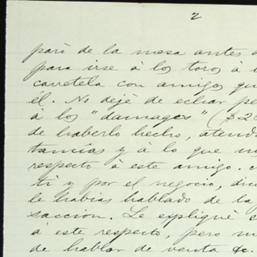 2
paró de la mesa antes d
para irse á los toros á
carretela con amigos qu
él. No dejé de echar pe
á los "damages" ($2
de haberlo hecho, atend
tancias y á lo que m
respecto á este amigo.
ti y por el negocio, dic
le habias hablado de la
saccion. Le expliqué s
á este respecto, pero
de hablar de venta &c.